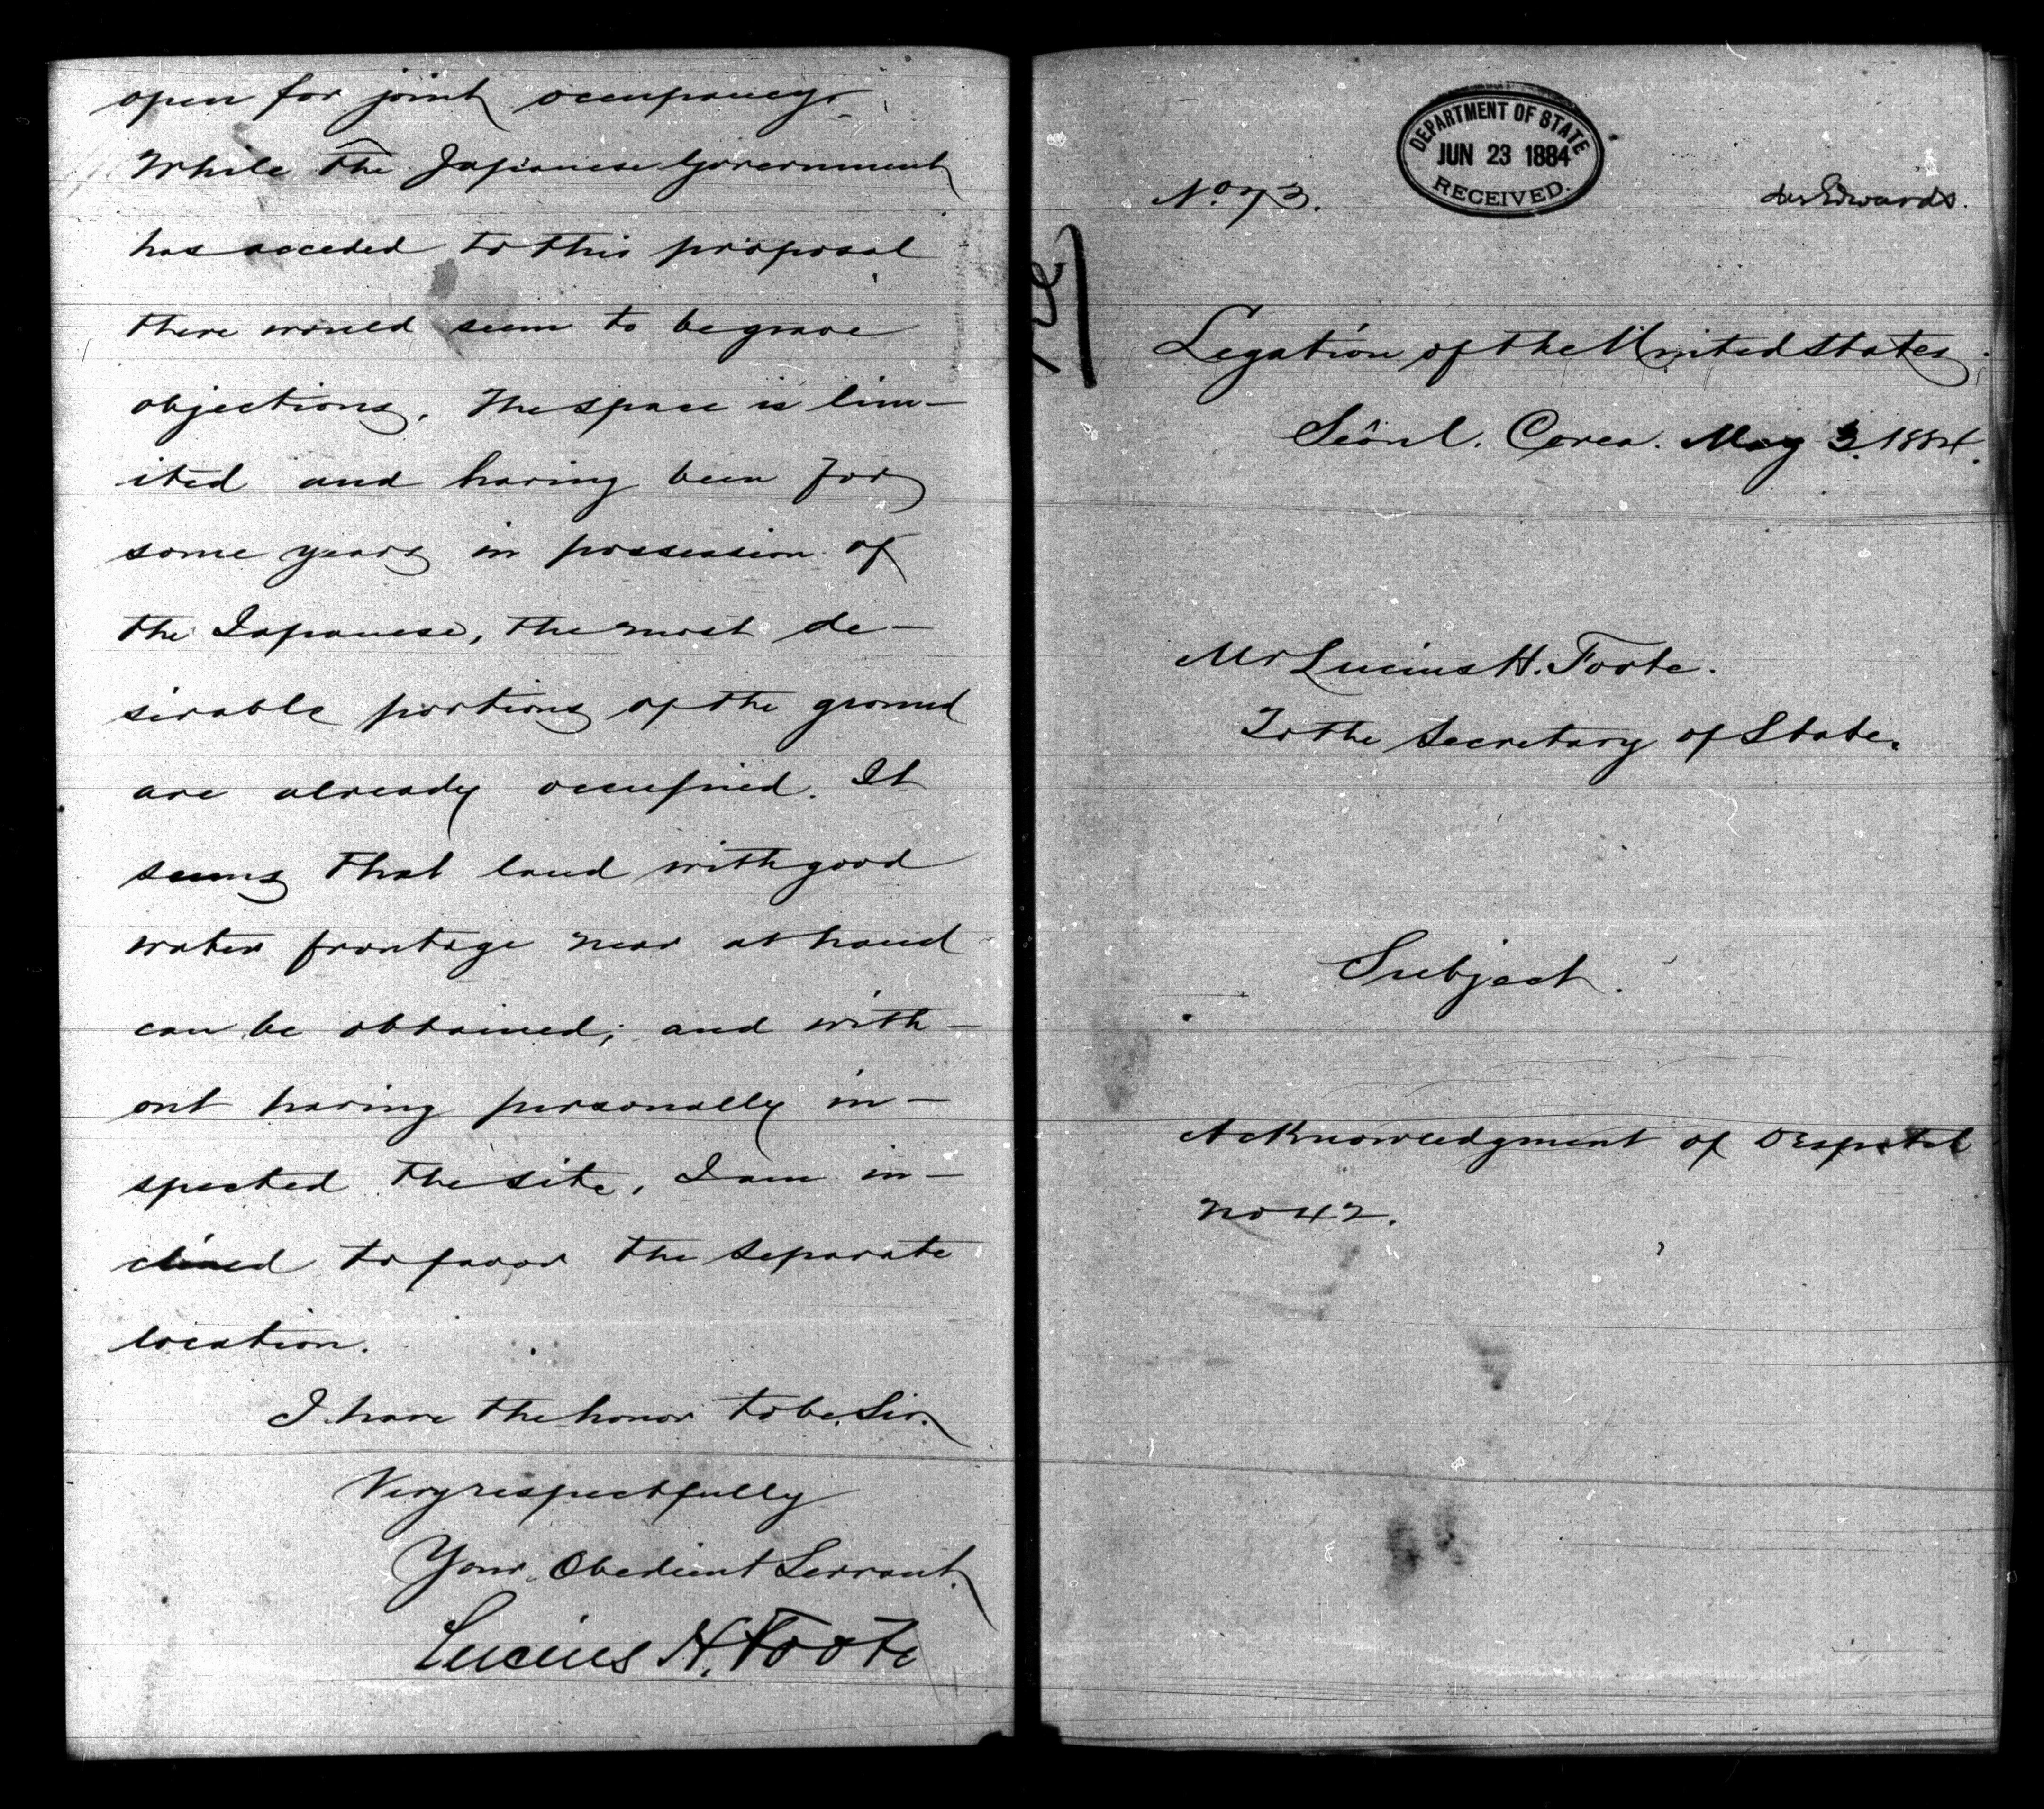 open for joint occupancy.
While the Japanese Government
has acceded to this proposal
there would seem to be grave
objections. The space is lim-
ited and having been for
some years in possession of
the Japanese, the most de-
sirable portions of the ground
are already occupied. It
seems that land with good
water frontage near at hand
can be obtained; and with-
out having personally in-
spected the site, I am in-
clined to favor the separate
location.
I have the honor to be. Sir.
Very respectfully
Your Obedient Servant.
Lucius H. Foote
DEPARTMENT OF STATE
JUN 23 1884
RECEIVED.
No. 73.
Edwards.
Legation of the United States.
Seôul. Corea. May 3. 1884.
Mr Lucius H. Foote.
To the Secretary of State.
Subject.
Acknowledgment of Dispatch
No 42.